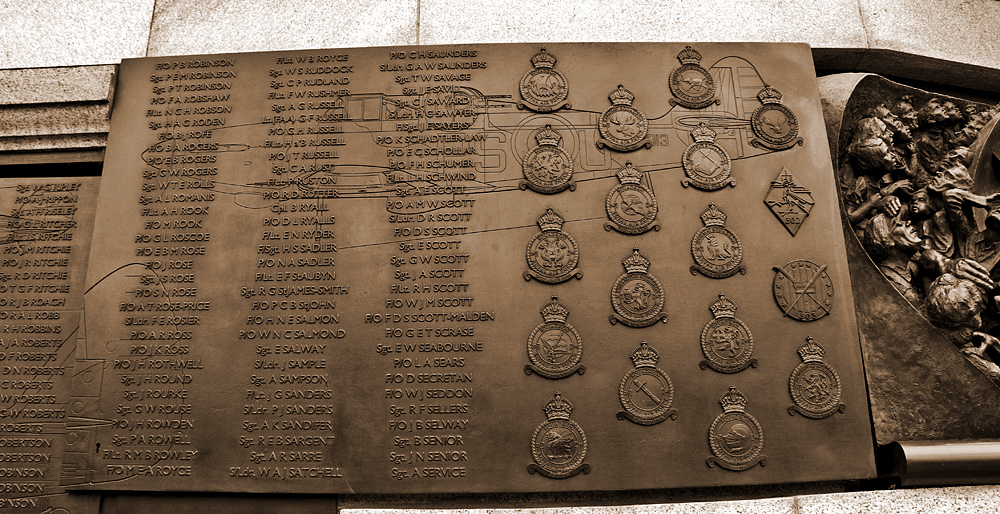 Sgt. W G RIPLEY
P/O A J RIPPON
Sgt. A H RISELEY
P/O G L RITCHER
F/Lt. I S RITCHIE
P/O J M RITCHIE
P/O J R RITCHIE
Sgt. R D RITCHIE
P/O T G F RITCHIE
P/O R J B ROACH
P/O R A L ROBB
R H ROBBINS
A J A ROBERTS
D F ROBERTS
D N ROBERTS
C ROBERTS
R ROBERTS
G W ROBERTS
ROBERTS
ROBERTSON
ROBERTSON
ROBINSON
ROBINSON
ROBINSON
F/O P B ROBINSON
Sgt. P E M ROBINSON
Sgt. P T ROBINSON
P/O F A ROBSHAW
P/O N C H ROBSON
Sgt. H C RODEN
P/O B J ROFE
P/O E B ROGERS
Sgt. G W ROGERS
Sgt. W T E ROLLS
Sgt. A L ROMANIS
F/Lt. A H ROOK
P/O M ROOK
P/O G L ROSCOE
P/O E B M ROSE
F/O J ROSE
Sgt. J S ROSE
P/O S N ROSE
P/O A T ROSE-PRICE
S/Ldr. F E ROSIER
P/O A R ROSS
P/O J K ROSS
P/O J H ROTHWELL
Sgt. J H ROUND
Sgt. J ROURKE
Sgt. G W ROUSE
P/O J H ROWDEN
Sgt. P A ROWELL
F/Lt. R M B ROWLEY
F/O M E A ROYCE
F/Lt. W B ROYCE
Sgt. W S RUDDOCK
Sgt. C P RUDLAND
F/Lt. F W RUSHMER
Sgt. A G RUSSELL
Lt. (FAA) G F RUSSELL
F/Lt. H à B RUSSELL
P/O G H RUSSELL
P/O J T RUSSELL
Sgt. C A RUST
F/Lt. P RUSTON
P/O R D RUTTER
Cpl. B RYALL
P/O D L RYALLS
F/Lt. E N RYDER
F/Sgt. H S SADLER
P/O N A SADLER
F/Lt. E F St AUBYN
Sgt. R G St JAMES-SMITH
P/O P C B St JOHN
F/O H N E SALMON
P/O W N C SALMOND
Sgt. E SALWAY
S/Ldr. J SAMPLE
Sgt. A SAMPSON
F/Lt. J G SANDERS
S/Ldr. P J SANDERS
Sgt. A K SANDIFER
Sgt. R E B SARGENT
Sgt. A R SARRE
S/Ldr. W A J SATCHELL
P/O C H SAUNDERS
S/Ldr. G A W SAUNDERS
Sgt. T W SAVAGE
Sgt. J E SAVILL
Sgt. C J SAWARD
S/Ldr. H C SAWYER
F/Sgt. J E SAYERS
P/O K SCHADTLER-LAW
P/O E C SCHOLLAR
P/O F H SCHUMER
F/Lt. L H SCHWIND
Sgt. A E SCOTT
P/O A M W SCOTT
S/Ldr. D R SCOTT
P/O D S SCOTT
Sgt. E SCOTT
Sgt. G W SCOTT
Sgt. J A SCOTT
F/Lt. R H SCOTT
F/O W J M SCOTT
F/O F D S SCOTT-MALDEN
F/O G E T SCRASE
Sgt. E W SEABOURNE
F/O L A SEARS
F/O D SECRETAN
F/O W J SEDDON
Sgt. R F SELLERS
F/O J B SELWAY
Sgt. B SENIOR
Sgt. J N SENIOR
Sgt. A SERVICE